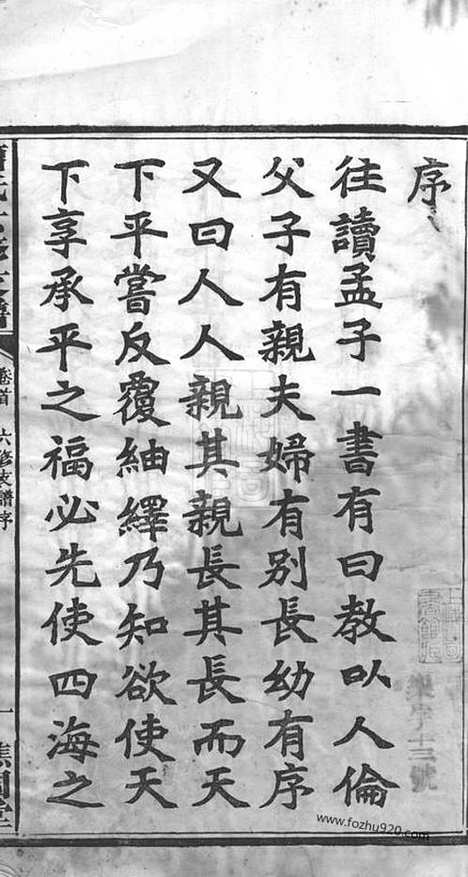 序
往讀孟子一書有曰教以人倫
父子有親夫婦有別長幼有序
又曰人人親其親長其長而天
下平嘗反覆紬繹乃知欲使天
下享承平之福必先使四海之
卷首 六修支譜序
一
www.fozhu920.com